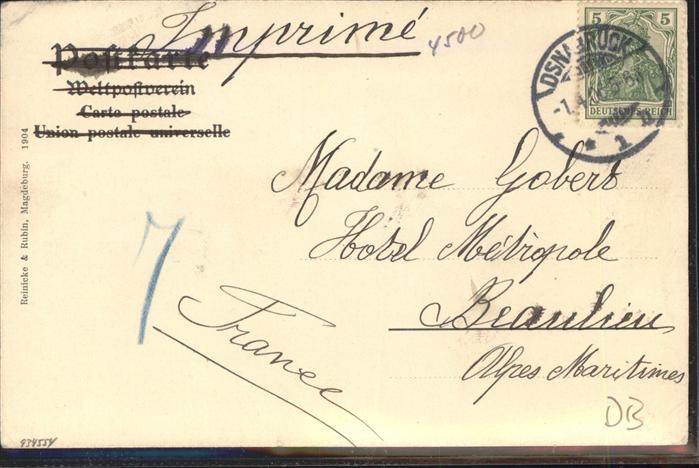 Imprimé
4500
Postkarte
Weltpostverein
Carte postale
Union postale universelle
5 5
DEUTSCHES REICH
OSNABRÜCK
1
Reinicke & Rubin, Magdeburg. 1904
Madame Gobert
Hotel Métropole
Beaulieu
Alpes Maritimes
France
7
DB